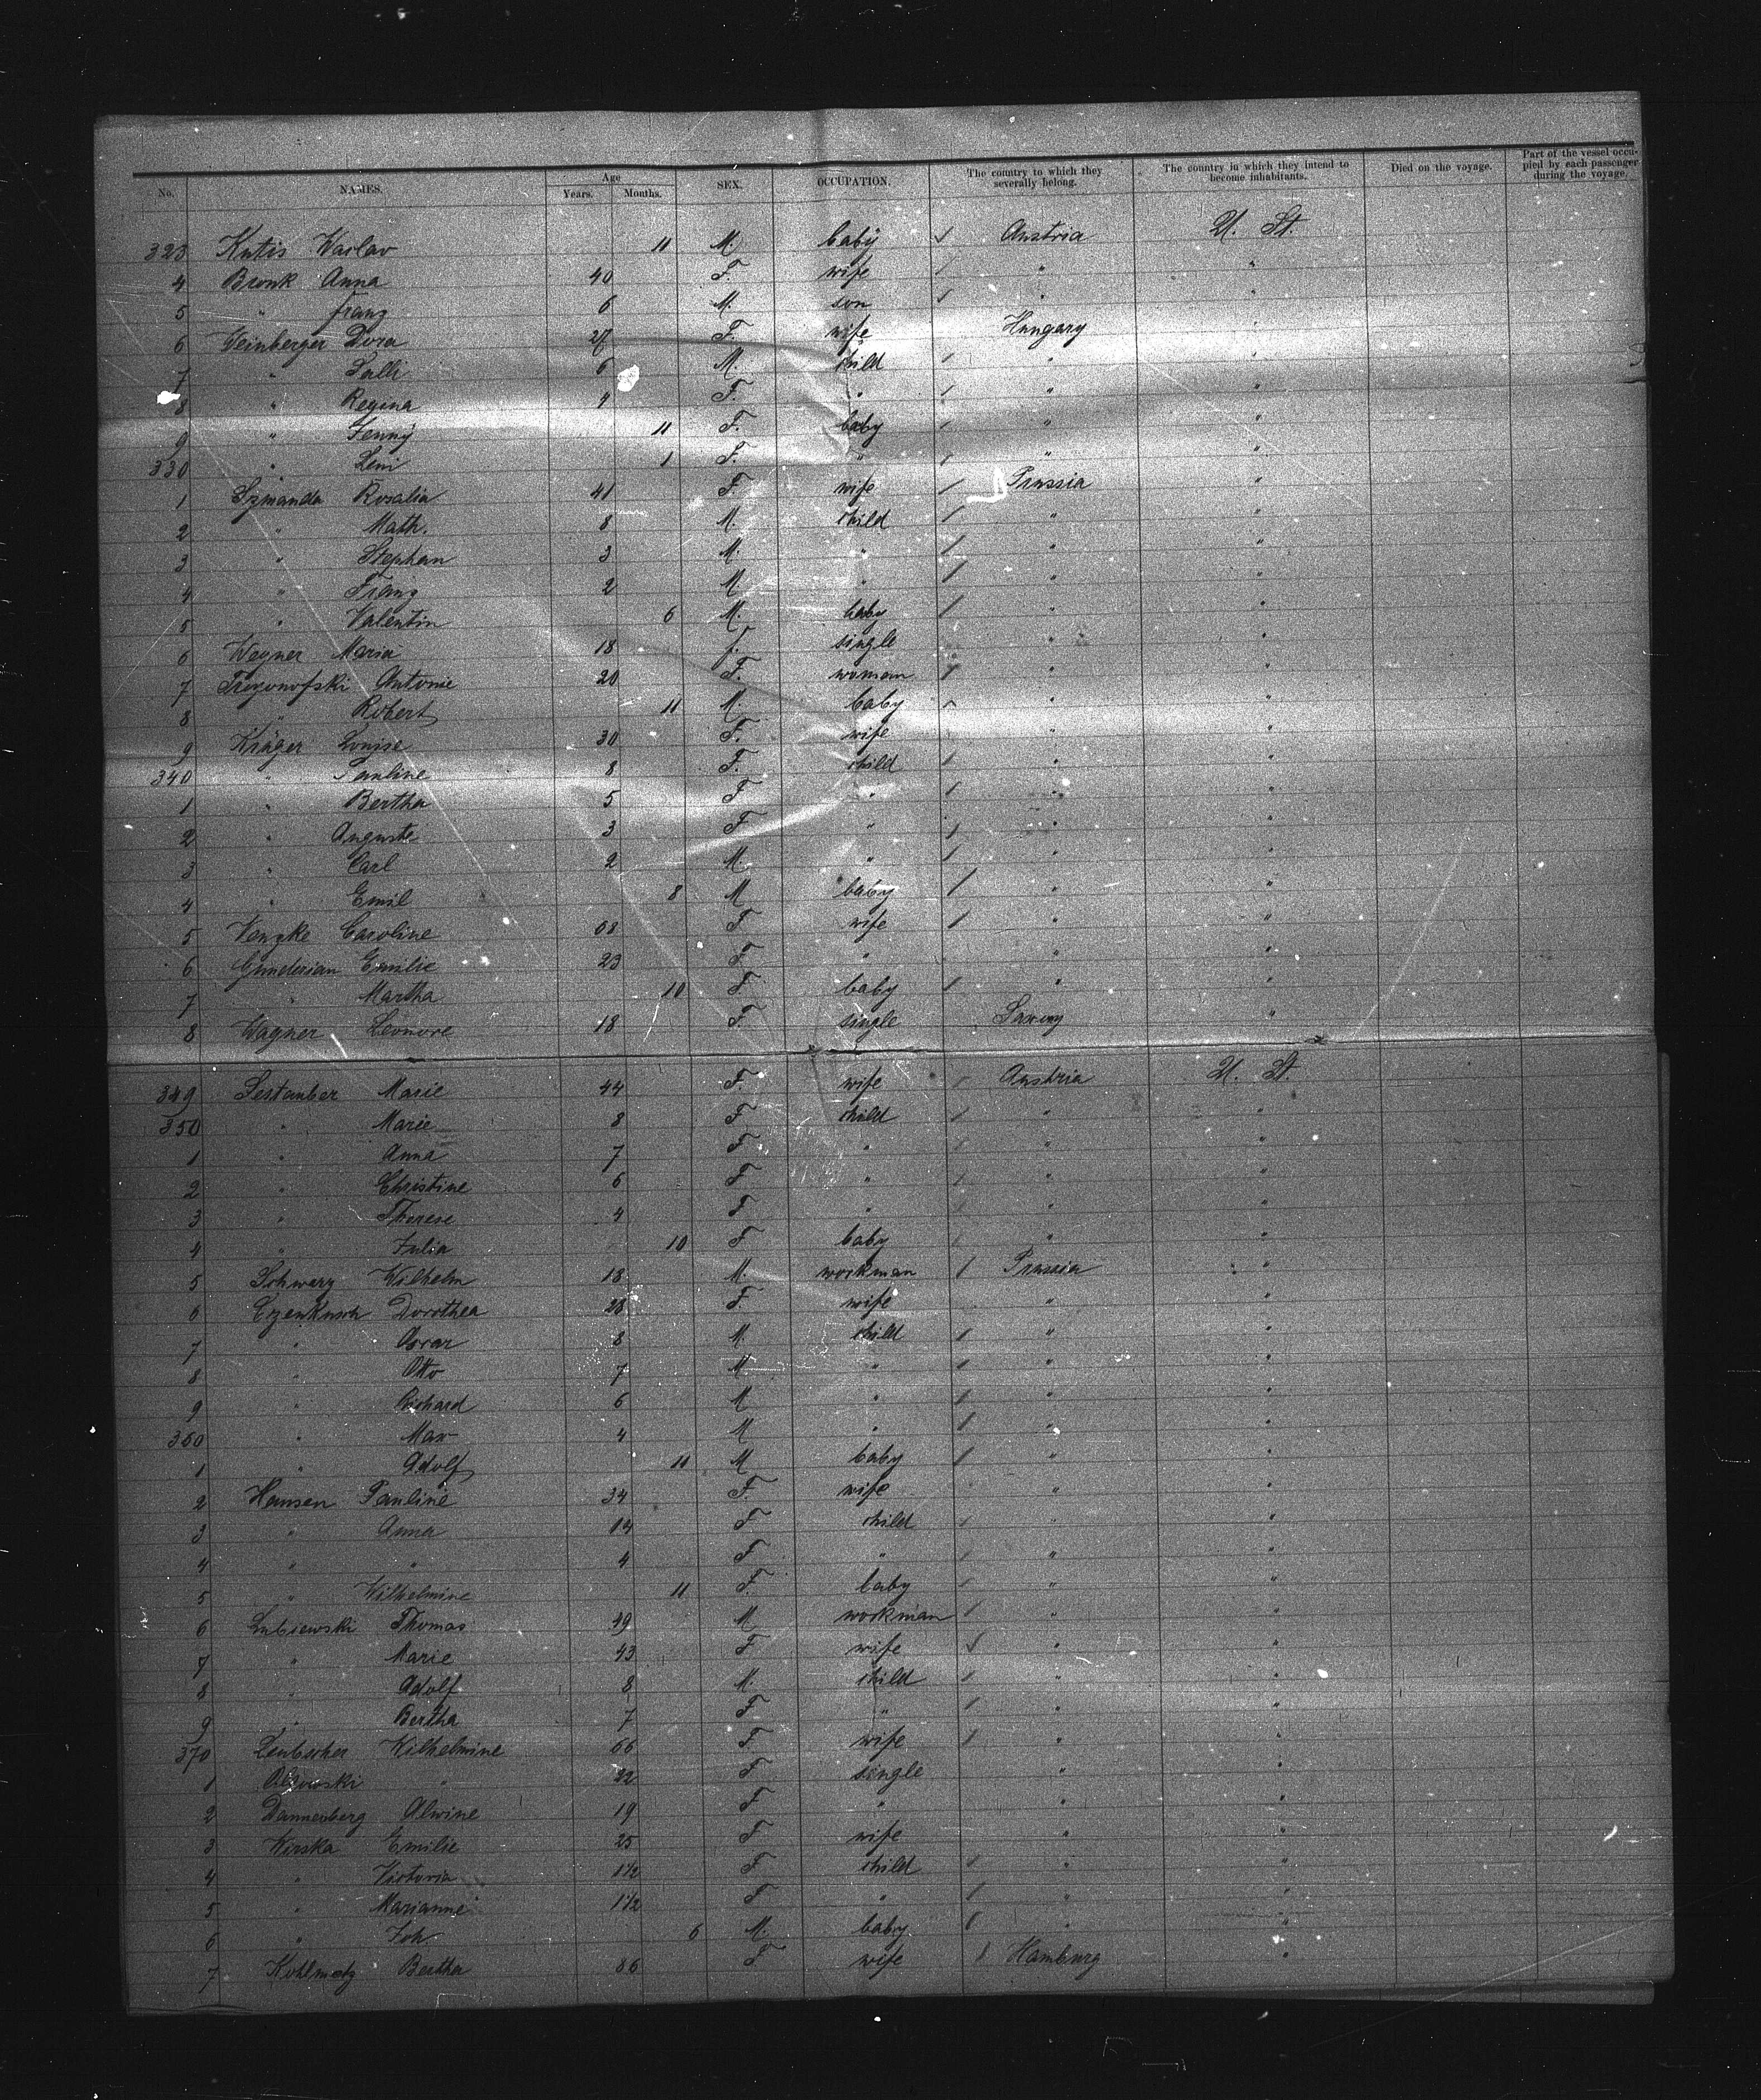 No. NAMES. Age Years. Months. SEX. OCCUPATION. The country to which they severally belong. The country in which they intend to become inhabitants. Died on the voyage. Part of the vessel occupied by each passenger during the voyage.
323 Kutis Waclav 11 M. baby Austria U. St.
4 Bronk Anna 40 F. wife " "
5 " Franz 6 M. son "
6 Weinberger Dora 27 F. wife Hungary
7 " Salli 6 M. child "
8 " Regina 4 F. " " "
9 " Jenny 11 F. baby " "
330 " Leni 1 F. " " "
1 Szmanda Rosalia 41 F. wife Prussia "
2 " Math. 8 M. child " "
3 " Stephan 3 M. " " "
4 " Franz 2 M. " "
5 " Valentin 6 M. baby " "
6 Wegner Maria 18 f. single " "
7 Antonie 20 F. woman " "
8 " Robert 11 M. baby " "
9 Krüger Louise 30 F. wife " "
340 " Pauline 8 F. child " "
1 " Bertha 5 F " " "
2 " Auguste 3 F " " "
3 " Carl 2 M. " " "
4 " Emil 8 M baby " "
5 Venzke Caroline 68 F wife " "
6 Gunderian Emilie 23 F. " " "
7 " Martha 10 F. baby " "
8 Wagner Leonore 18 F. single Saxony "
349 Sestauber Marie 44 F. wife Austria U. St.
350 " Marie 8 F child " "
1 " Anna 7 F " " "
2 " Christine 6 F " " "
3 " Therese 4 F " " "
4 " Julia 10 F baby " "
5 Schwarz Wilhelm 18 M. workman Prussia "
6 Dorothea 28 F. wife " "
7 " Oscar 8 M. child " "
8 " Otto 7 M " " "
9 " Richard 6 M " " "
360 " Max 4 M " " "
1 " Adolf 11 M baby " "
2 Hansen Pauline 34 F. wife " "
3 " Anna 14 F child " "
4 " " 4 F " " "
5 " Wilhelmine 11 F. baby " "
6 Lubiewski Thomas 49 M workman " "
7 " Marie 43 F wife " "
8 " Adolf 8 M. child " "
9 " Bertha 7 F " " "
370 Leubecher Wilhelmine 66 F wife " "
1 Olszewski " 22 F single " "
2 Dannenberg Alwine 19 F " " "
3 Wirska Emilie 25 F wife " "
4 " Victoria 1 1/2 F child " "
5 " Marianne 1 1/2 F " " "
6 " Joh 6 M. baby " "
7 Kohlmetz Bertha 36 F wife Hamburg "